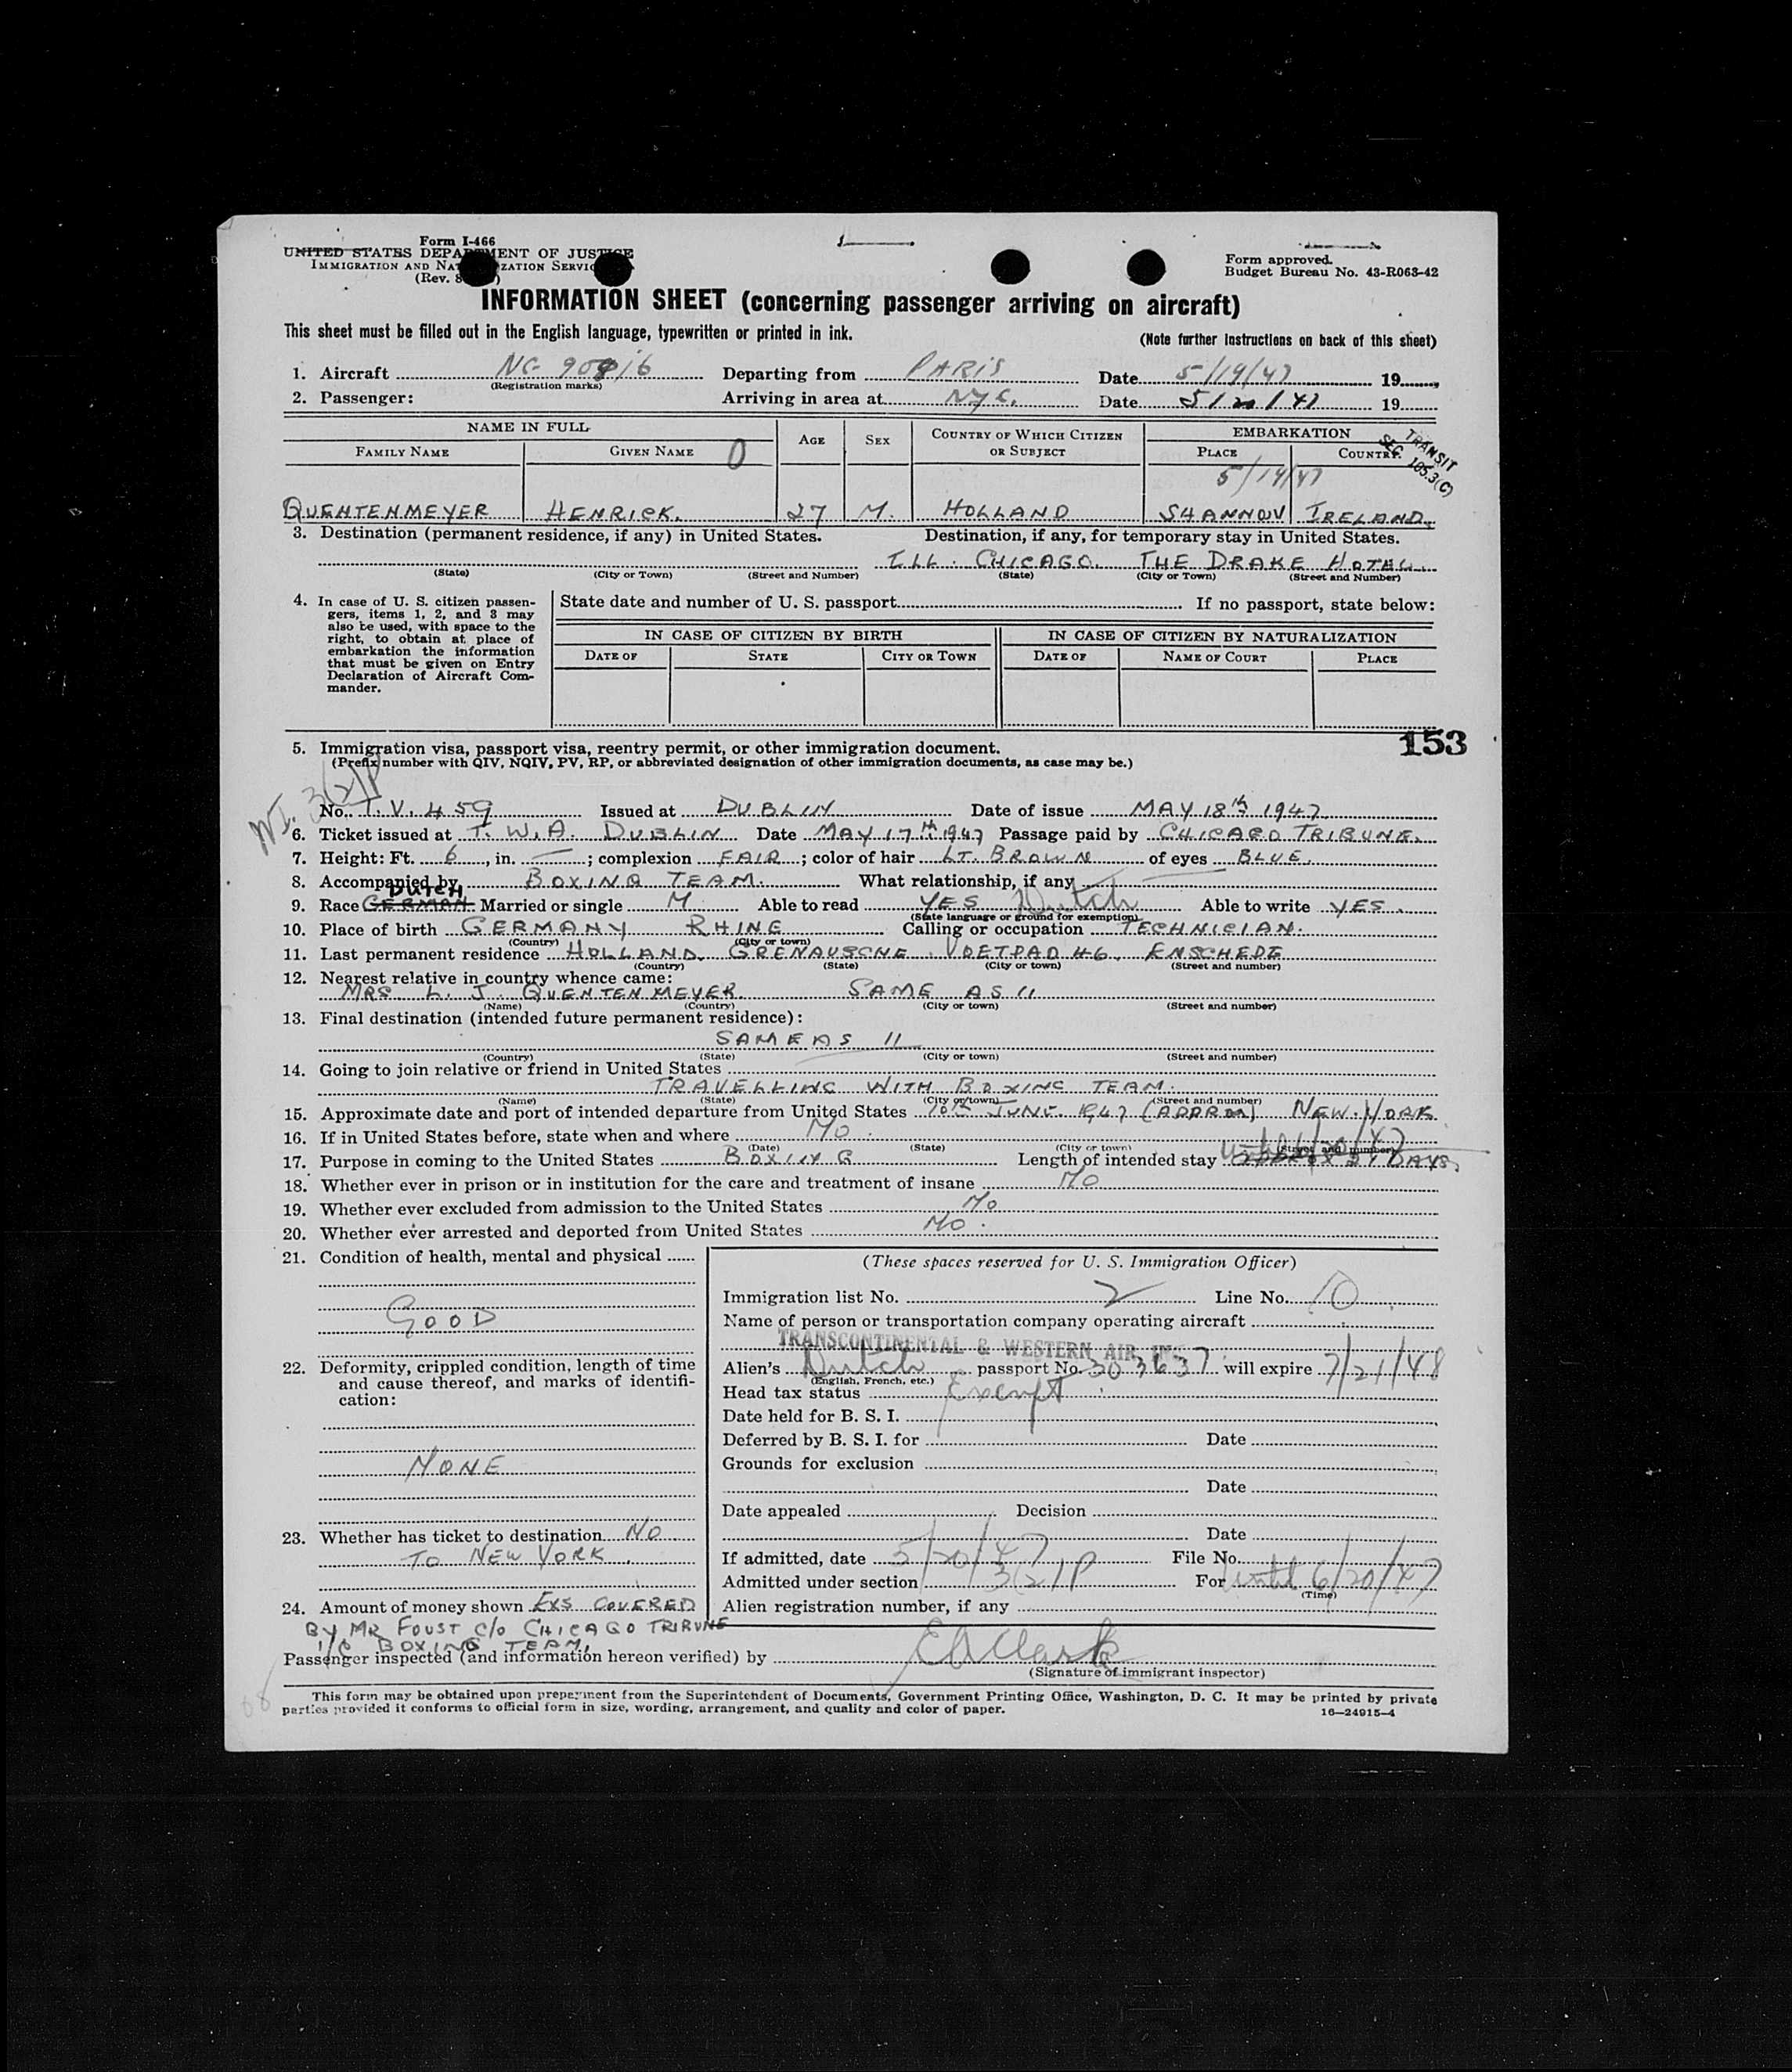 Form I-466
UNITED STATES DEPARTMENT OF JUSTICE
IMMIGRATION AND NATURALIZATION SERVICE
(Rev. 8
Form approved.
Budget Bureau No. 43-R063-42
INFORMATION SHEET (concerning passenger arriving on aircraft)
This sheet must be filled out in the English language, typewritten or printed in ink.
(Note further instructions on back of this sheet)
1. Aircraft (Registration marks) Departing from PARIS Date 5/19/47 19
2. Passenger: Arriving in area at NYC. Date 5/20/47 19
NAME IN FULL AGE SEX COUNTRY OF WHICH CITIZEN OR SUBJECT EMBARKATION
FAMILY NAME GIVEN NAME O PLACE COUNTRY
TRANSIT
SEC 105.3(C)
5/19/47
QUENTENMEYER HENRICK. 27 M. HOLLAND SHANNON IRELAND.
3. Destination (permanent residence, if any) in United States. Destination, if any, for temporary stay in United States.
ILL. CHICAGO. THE DRAKE HOTEL.
(State) (City or Town) (Street and Number) (State) (City or Town) (Street and Number)
4. In case of U. S. citizen passengers, items 1, 2, and 3 may also be used, with space to the right, to obtain at place of embarkation the information that must be given on Entry Declaration of Aircraft Commander.
State date and number of U. S. passport If no passport, state below:
IN CASE OF CITIZEN BY BIRTH IN CASE OF CITIZEN BY NATURALIZATION
DATE OF STATE CITY OR TOWN DATE OF NAME OF COURT PLACE
153
5. Immigration visa, passport visa, reentry permit, or other immigration document.
(Prefix number with QIV, NQIV, PV, RP, or abbreviated designation of other immigration documents, as case may be.)
3(2)P
No. T.V. 459 Issued at DUBLIN Date of issue MAY 18th 1947
6. Ticket issued at T.W.A. DUBLIN Date MAY 17th 1947 Passage paid by CHICAGO TRIBUNE.
7. Height: Ft. 6, in. — ; complexion FAIR ; color of hair LT. BROWN of eyes BLUE.
8. Accompanied by BOXING TEAM. What relationship, if any —
DUTCH
9. Race GERMAN Married or single M Able to read YES Dutch Able to write YES.
(State language or ground for exemption)
10. Place of birth GERMANY RHINE Calling or occupation TECHNICIAN.
(Country) (City or town)
11. Last permanent residence HOLLAND. VOETPAD 46. ENSCHEDE
(Country) (State) (City or town) (Street and number)
12. Nearest relative in country whence came:
MRS. L. J. QUENTENMEYER. SAME AS 11
(Name) (Country) (City or town) (Street and number)
13. Final destination (intended future permanent residence):
SAME AS 11
(Country) (State) (City or town) (Street and number)
14. Going to join relative or friend in United States
TRAVELLING WITH BOXING TEAM.
(Name) (State) (City or town) (Street and number)
15. Approximate date and port of intended departure from United States 10th JUNE 1947 (APPROX) NEW YORK
16. If in United States before, state when and where NO.
(Date) (State) (City or town) (Street and number)
17. Purpose in coming to the United States BOXING Length of intended stay until 6/20/47 DAYS.
18. Whether ever in prison or in institution for the care and treatment of insane NO
19. Whether ever excluded from admission to the United States NO
20. Whether ever arrested and deported from United States NO.
21. Condition of health, mental and physical
GOOD
22. Deformity, crippled condition, length of time and cause thereof, and marks of identification:
NONE
23. Whether has ticket to destination NO
TO NEW YORK.
24. Amount of money shown EXS COVERED
BY MR FOUST C/O CHICAGO TRIBUNE
I/C BOXING TEAM.
(These spaces reserved for U. S. Immigration Officer)
Immigration list No. 2 Line No. 10
Name of person or transportation company operating aircraft
TRANSCONTINENTAL & WESTERN AIR, INC
Alien's Dutch passport No. 303637 will expire 7/21/48
(English, French, etc.)
Head tax status Exempt
Date held for B. S. I.
Deferred by B. S. I. for Date
Grounds for exclusion
Date
Date appealed Decision
Date
If admitted, date 5/20/47 File No.
Admitted under section 3(2)P For until 6/20/47
(Time)
Alien registration number, if any
Passenger inspected (and information hereon verified) by EA Clark
(Signature of immigrant inspector)
This form may be obtained upon prepayment from the Superintendent of Documents, Government Printing Office, Washington, D. C. It may be printed by private
parties provided it conforms to official form in size, wording, arrangement, and quality and color of paper.
16—24915-4